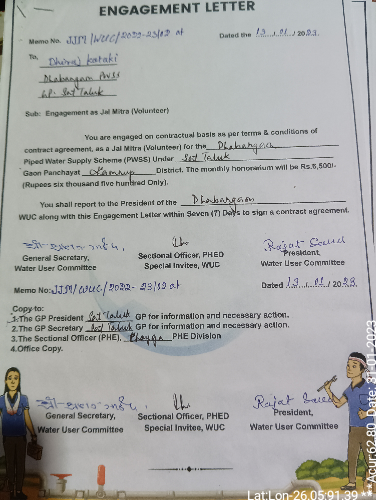 ENGAGEMENT LETTER
Memo No. JJM/WUC/2022-23/02 at Dated the 13/01/2023
To,
Dhiraj Kataki
Dhabargaon PWSS
GP: Sat Taluk
Sub: Engagement as Jal Mitra (Volunteer)
You are engaged on contractual basis as per terms & conditions of
contract agreement, as a Jal Mitra (Volunteer) for the Dhabargaon
Piped Water Supply Scheme (PWSS) Under Sat Taluk
Gaon Panchayat District. The monthly honorarium will be Rs.6,500/-
(Rupees six thousand five hundred Only).
You shall report to the President of the Dhabargaon
WUC along with this Engagement Letter within Seven (7) Days to sign a contract agreement.
Rajat
General Secretary, Sectional Officer, PHED President,
Water User Committee Special Invitee, WUC Water User Committee
Memo No: JJM/WUC/2022-23/ at Dated 13/01/2023
Copy to:
1.The GP President Sat Taluk GP for information and necessary action.
2.The GP Secretary Sat Taluk GP for information and necessary action.
3.The Sectional Officer (PHE), PHE Division
4.Office Copy.
Rajat
General Secretary, Sectional Officer, PHED President,
Water User Committee Special Invitee, WUC Water User Committee
Lat:Lon-26.05,91.39 ** Acur:62.80 Date: 31-01-2023